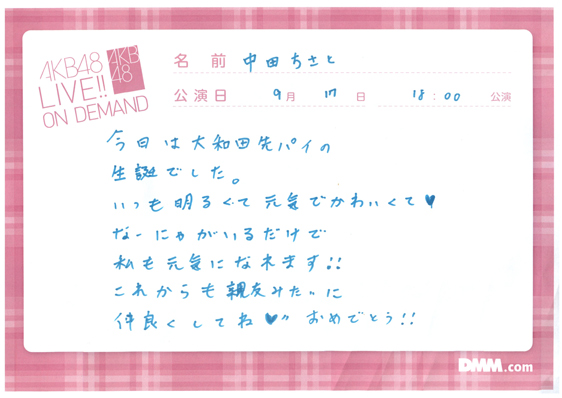 AKB48
LIVE!!
ON DEMAND
AKB
48
名前 中田ちさと
公演日 9月 17日 18:00 公演
今日は大和田先パイの
生誕でした。
いつも明るくて元気でかわいくて♥
なーにゃがいるだけで
私も元気になれます!!
これからも親友みたいに
仲良くしてね♥〃おめでとう!!
DMM.com